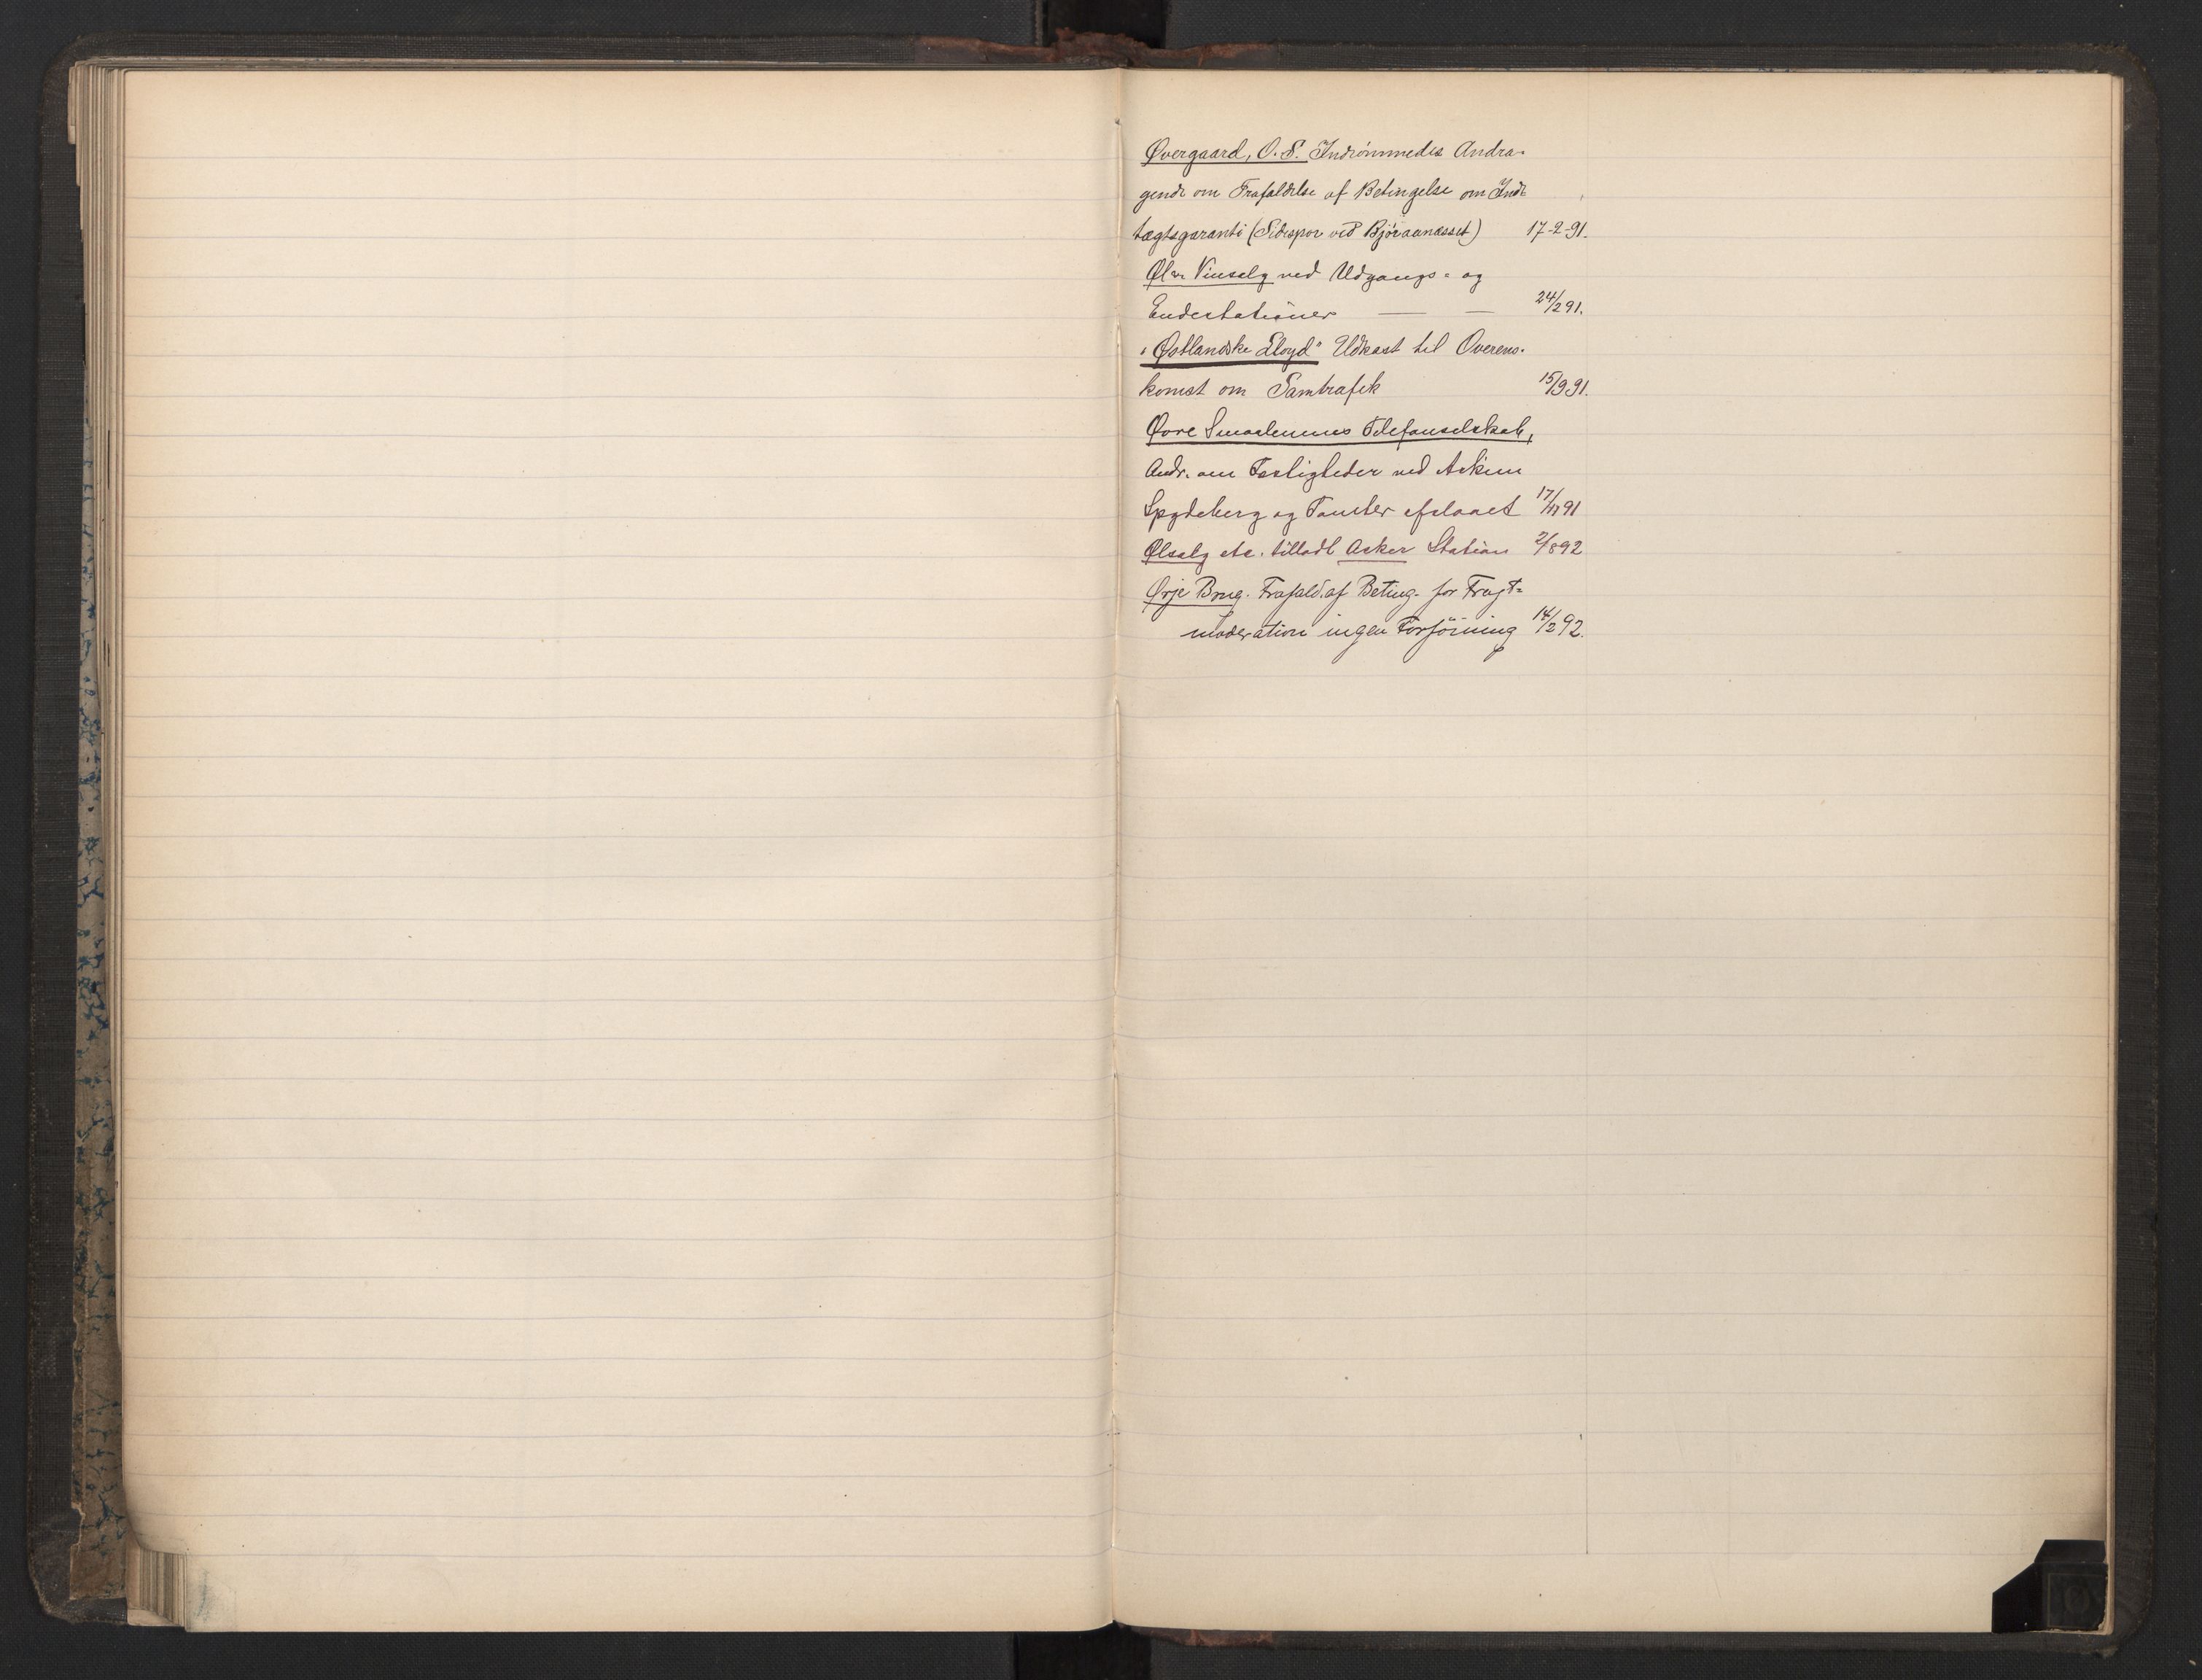 Øvergaard, O. S. Indrömmedes Andra-
gende om Frafaldelse af Betingelse om Ind-
tægtsgaranti (Sidespor ved Björaanæsset) 17-2-91.
Øl- Vinsalg ved Udgangs- og
Endestationer — — 24/2 91.
"Østlandske Lloyd" Udkast til Overens-
komst om Samtrafik 15/9 91.
Øvre Smaalenenes Telefonselskab,
Andr. om ved Askim
Spydeberg og Tomter afslaaet 17/11 91
Ølsalg etc. tilladt Asker Station 2/8 92
Ørje Brug. Frafald. af Beting. for Fragt-
moderation ingen Forföining 14/2 92.